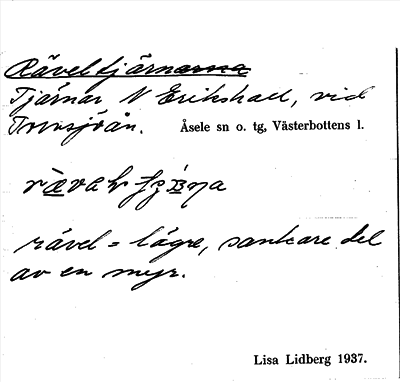 Råveltjärnarna
Tjärnar N Erikshall, vid
Torvsjöån. Åsele sn o. tg, Västerbottens l.
råvel = lägre, sankare del
av en myr.
Lisa Lidberg 1937.